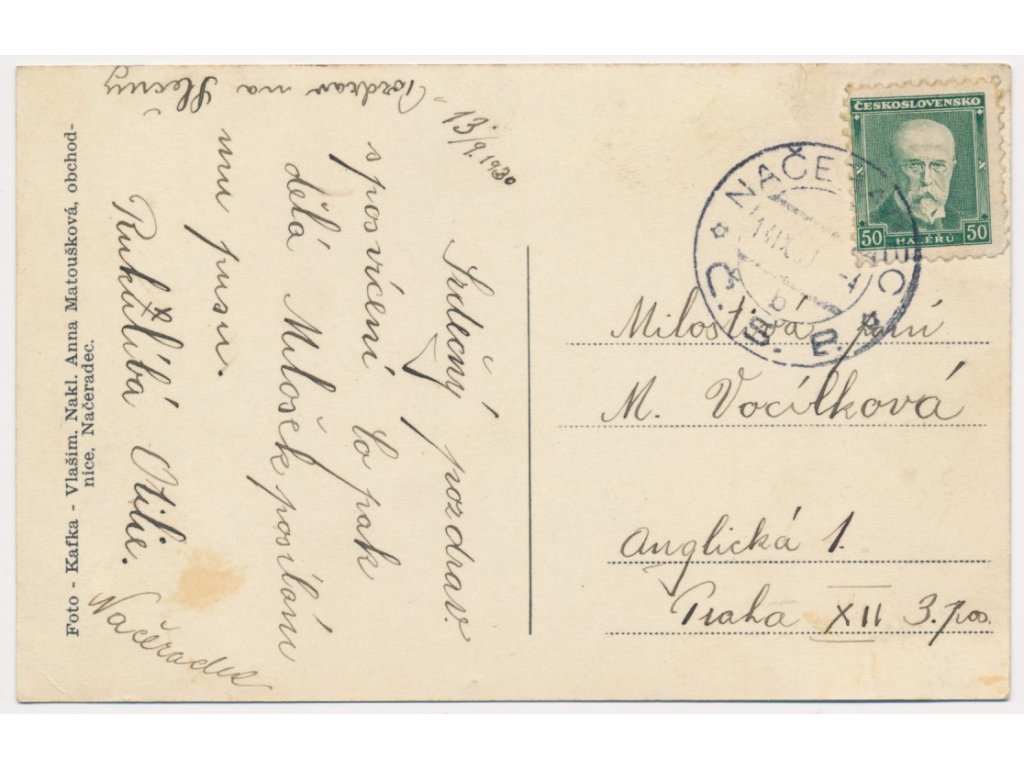 Foto - Kafka - Vlašim. Nakl. Anna Matoušková, obchod-
nice, Načeradec.
Pozdrav na Slečny
13./9.1930
Srdečný pozdrav
s posvícení Co pak
dělá Milošek posílám
mu pusu.
Rukulíbá Otilie.
Načeradec
ČESKOSLOVENSKO
50 HALÉŘŮ 50
NAČERADEC
Č. S. P.
Milostivá paní
M. Vocílková
Anglická 1.
Praha XII 3. pos.